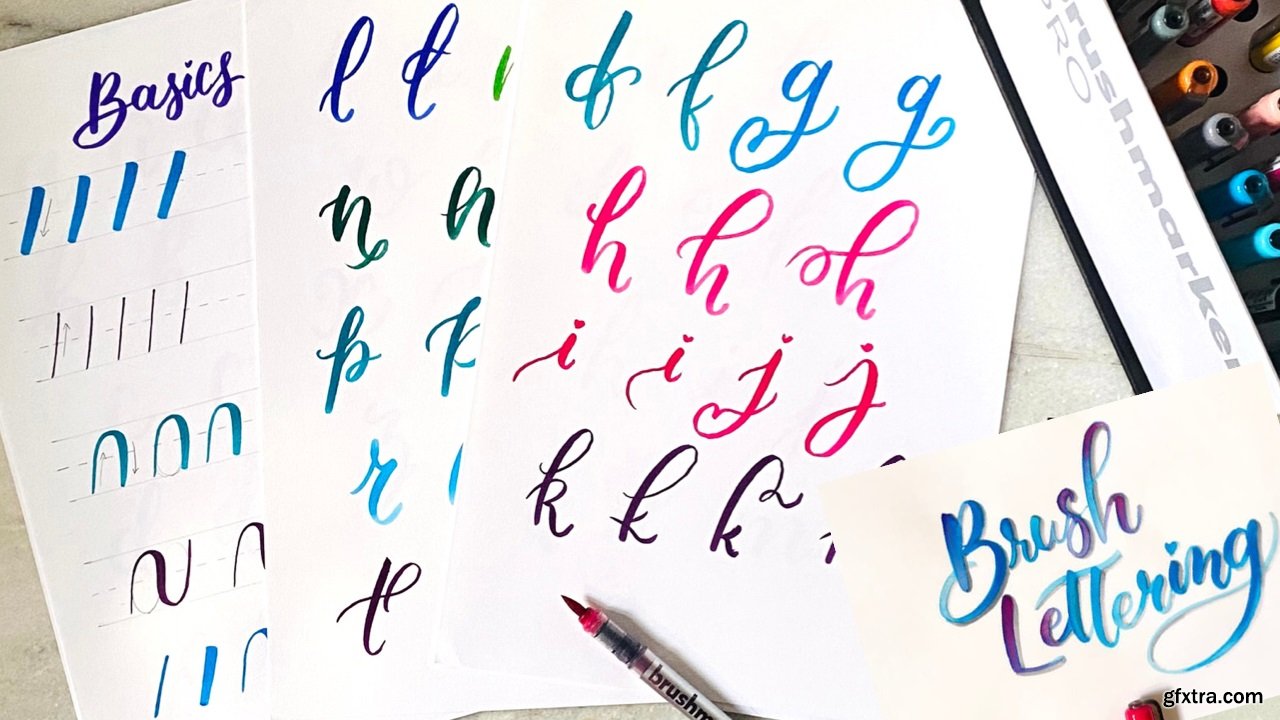 Basics
l l
n n
p p
r
t
f f g g
h h h
i i j j
k k k
Brush
Lettering
brushmarker
PRO
brushm
gfxtra.com